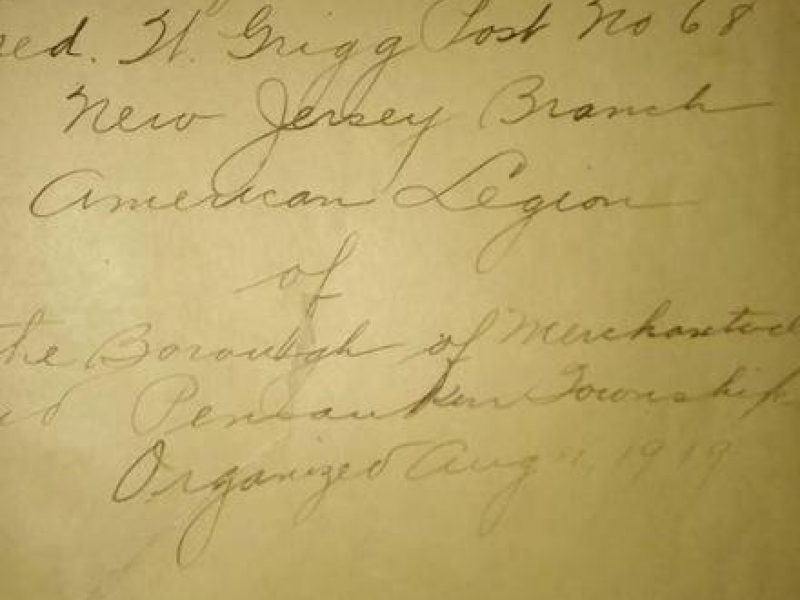 red. W. Grigg Post No 68
New Jersey Branch
American Legion
of
the Borough of Merchantvil
Pensauken Township
Organized Aug 1919